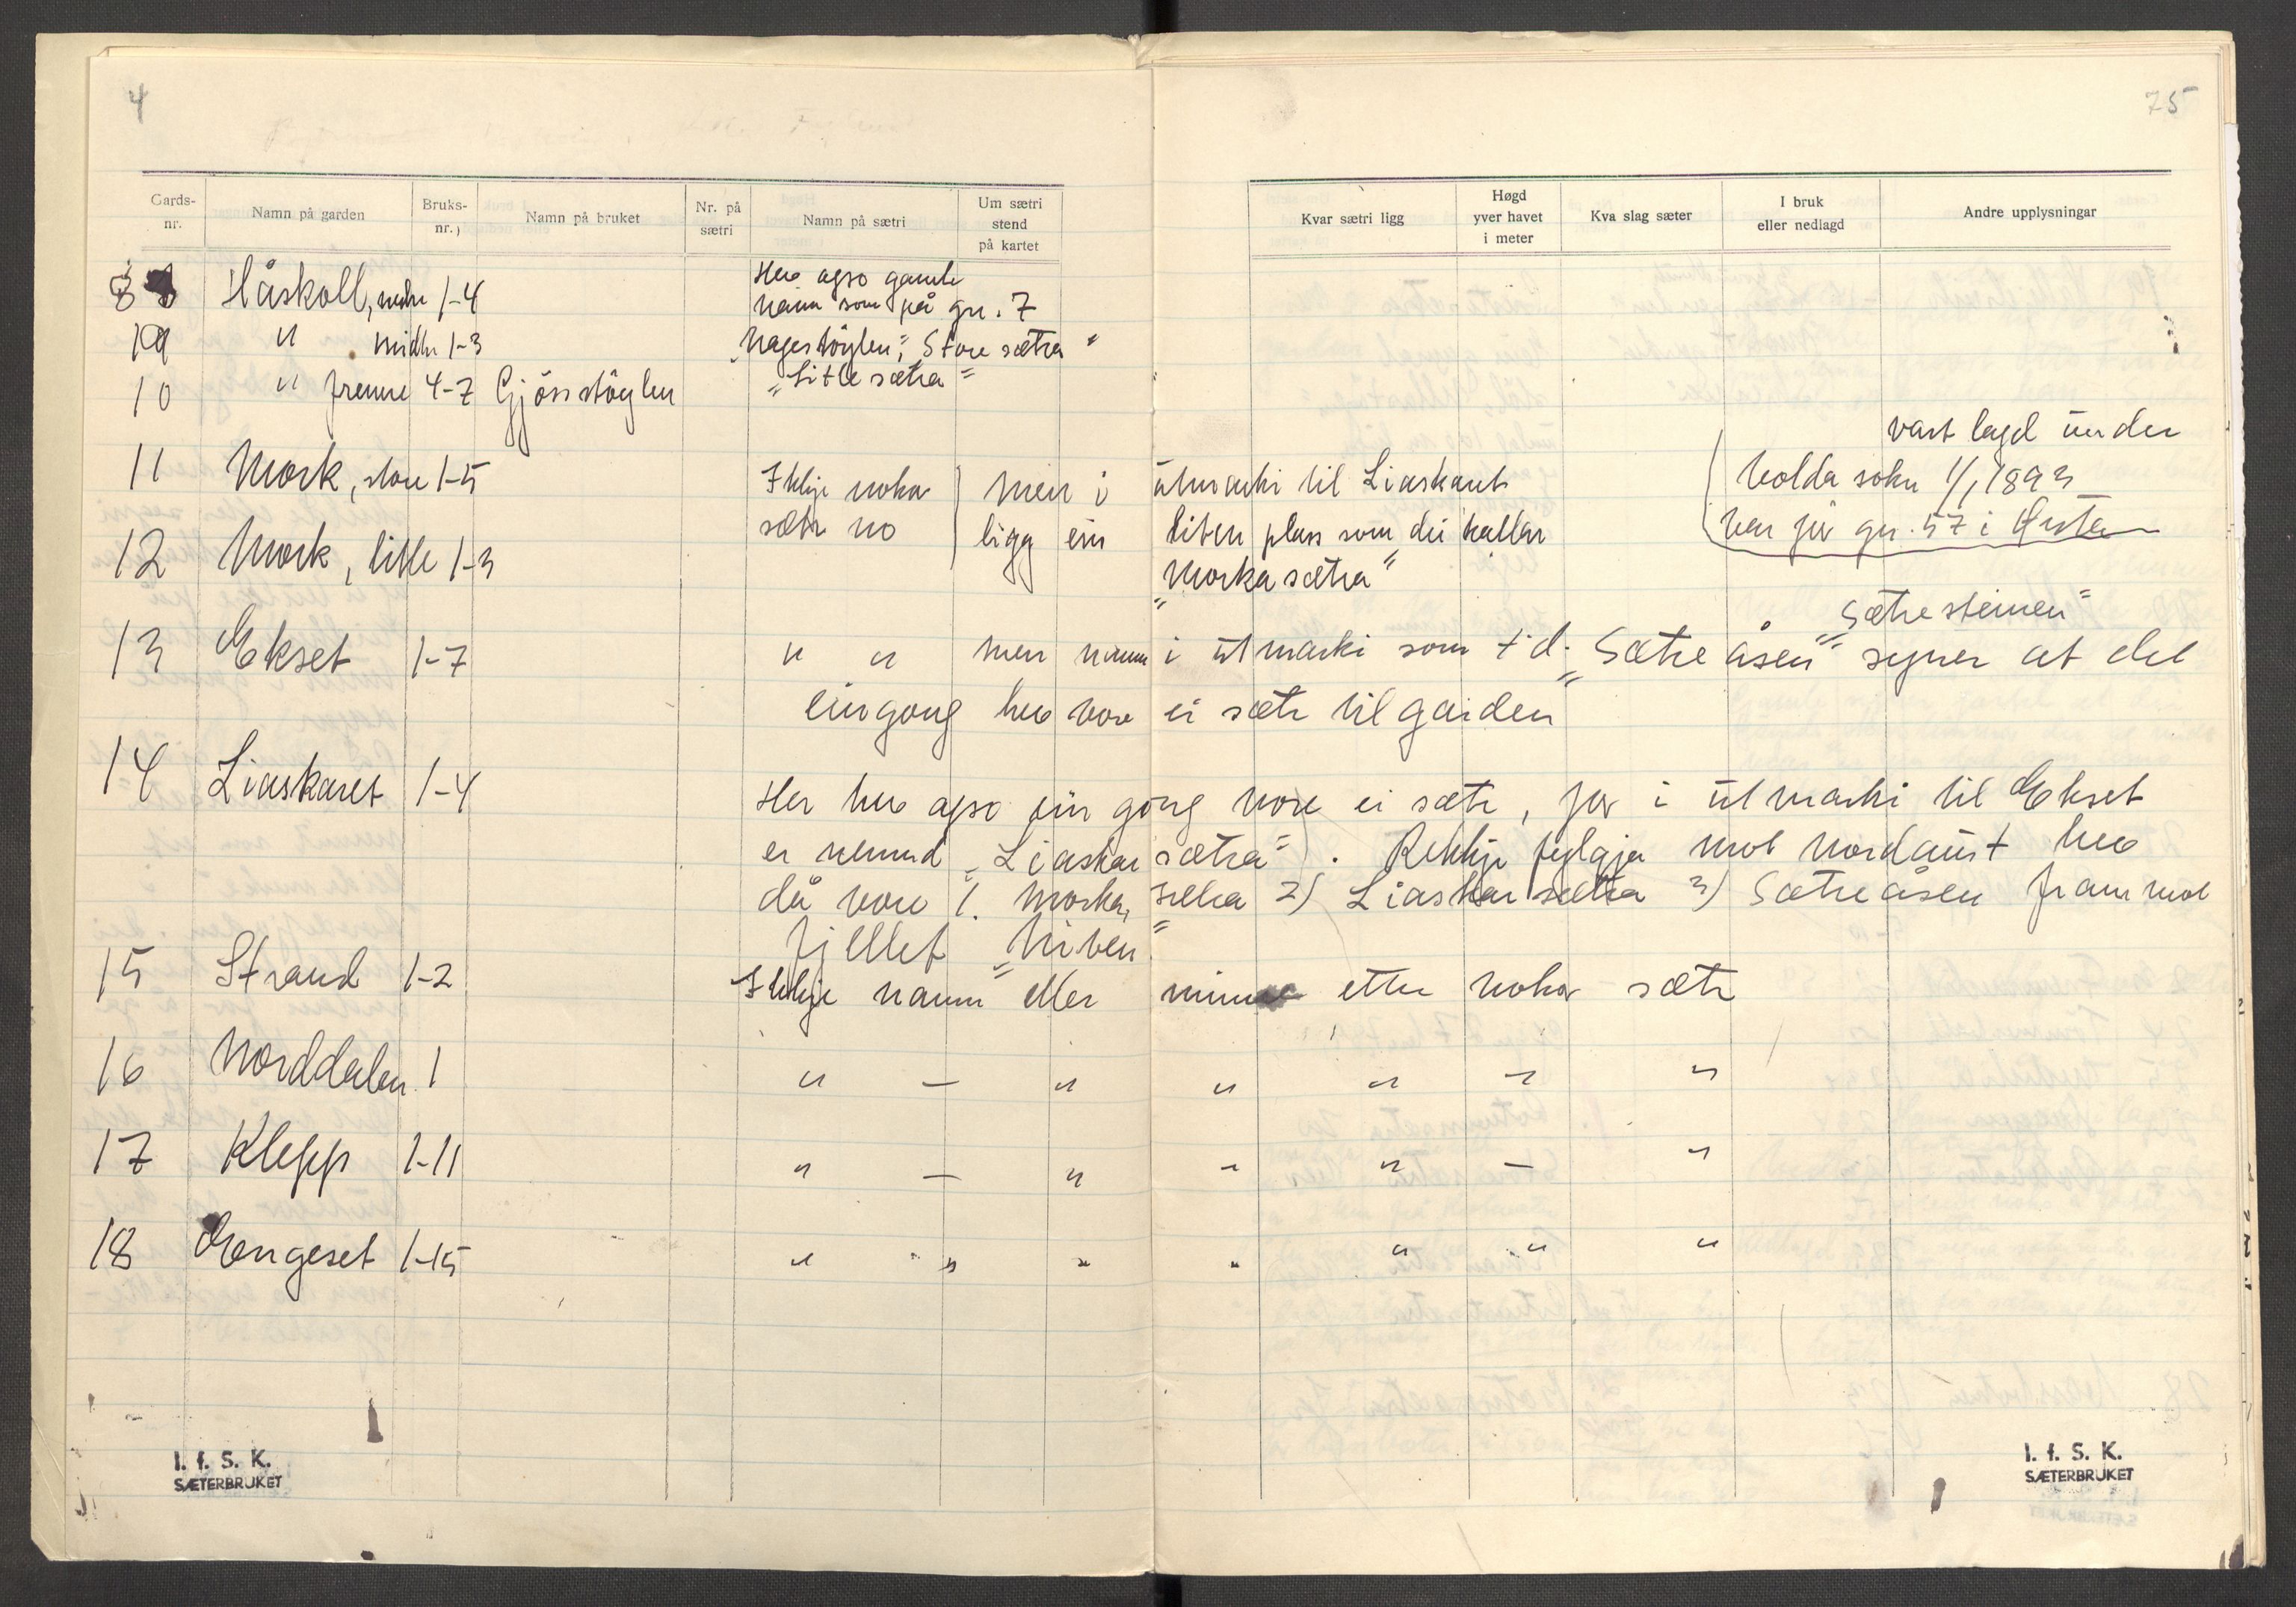 4
75
Gards-nr.
Namn på garden
Bruks-nr.
Namn på bruket
Nr. på sætri
Namn på sætri
Um sætri stend på kartet
Kvar sætri ligg
Høgd yver havet i meter
Kva slag sæter
I bruk eller nedlagd
Andre upplysningar
8 Håskoll, nedre 1-4
Her ogso gamle
namn som på gn. 7
9 " midtre 1-3
"Hagestöylen", "Store sætra"
10 " fremre 4-7 Gjösstöylen
"Litle sætra"
vart lagd under
11 Mork, store 1-5 Ikkje noka men i utmarki til Liaskaret Volda sokn 1/1 1893
12 Mork, litle 1-3 sætr no ligg ein liten plass som dei kallar var fyr gn. 57 i Ørsta
"Morkasætra"
"Sætresteinen"
13 Ekset 1-7 " " men namn i utmarki som t.d. "Sætreåsen" syner at det
eingong hev vore ei sætr til garden
14 Liaskaret 1-4
Her hev ogso ein gong vore ei sætr, for i utmarki til Ekset
er nemnd "Liaskarsætra". Rekkje fylgja mot nordaust hev
då vore 1. Morkasætra 2) Liaskarsætra 3) Sætreåsen fram mot
fjellet "Niven"
15 Strand 1-2 Ikkje namn eller minne etter noka sætr
16 Norddalen 1 " — " " " — "
17 Klepp 1-11 " — " " " — "
18 Engeset 1-15 " " " " " " "
I. f. S. K.
SÆTERBRUKET
I. f. S. K.
SÆTERBRUKET